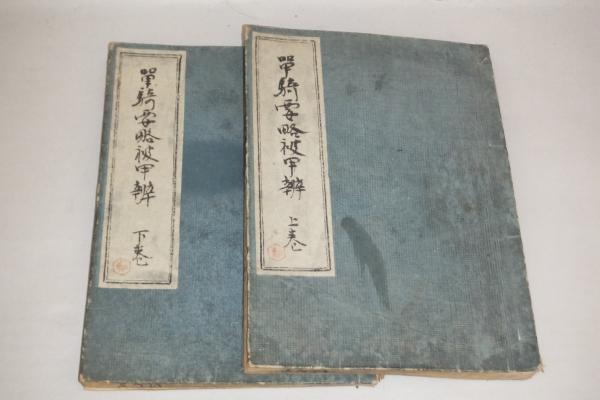 單騎要略被甲辨
上巻
單騎要略被甲辨
下巻